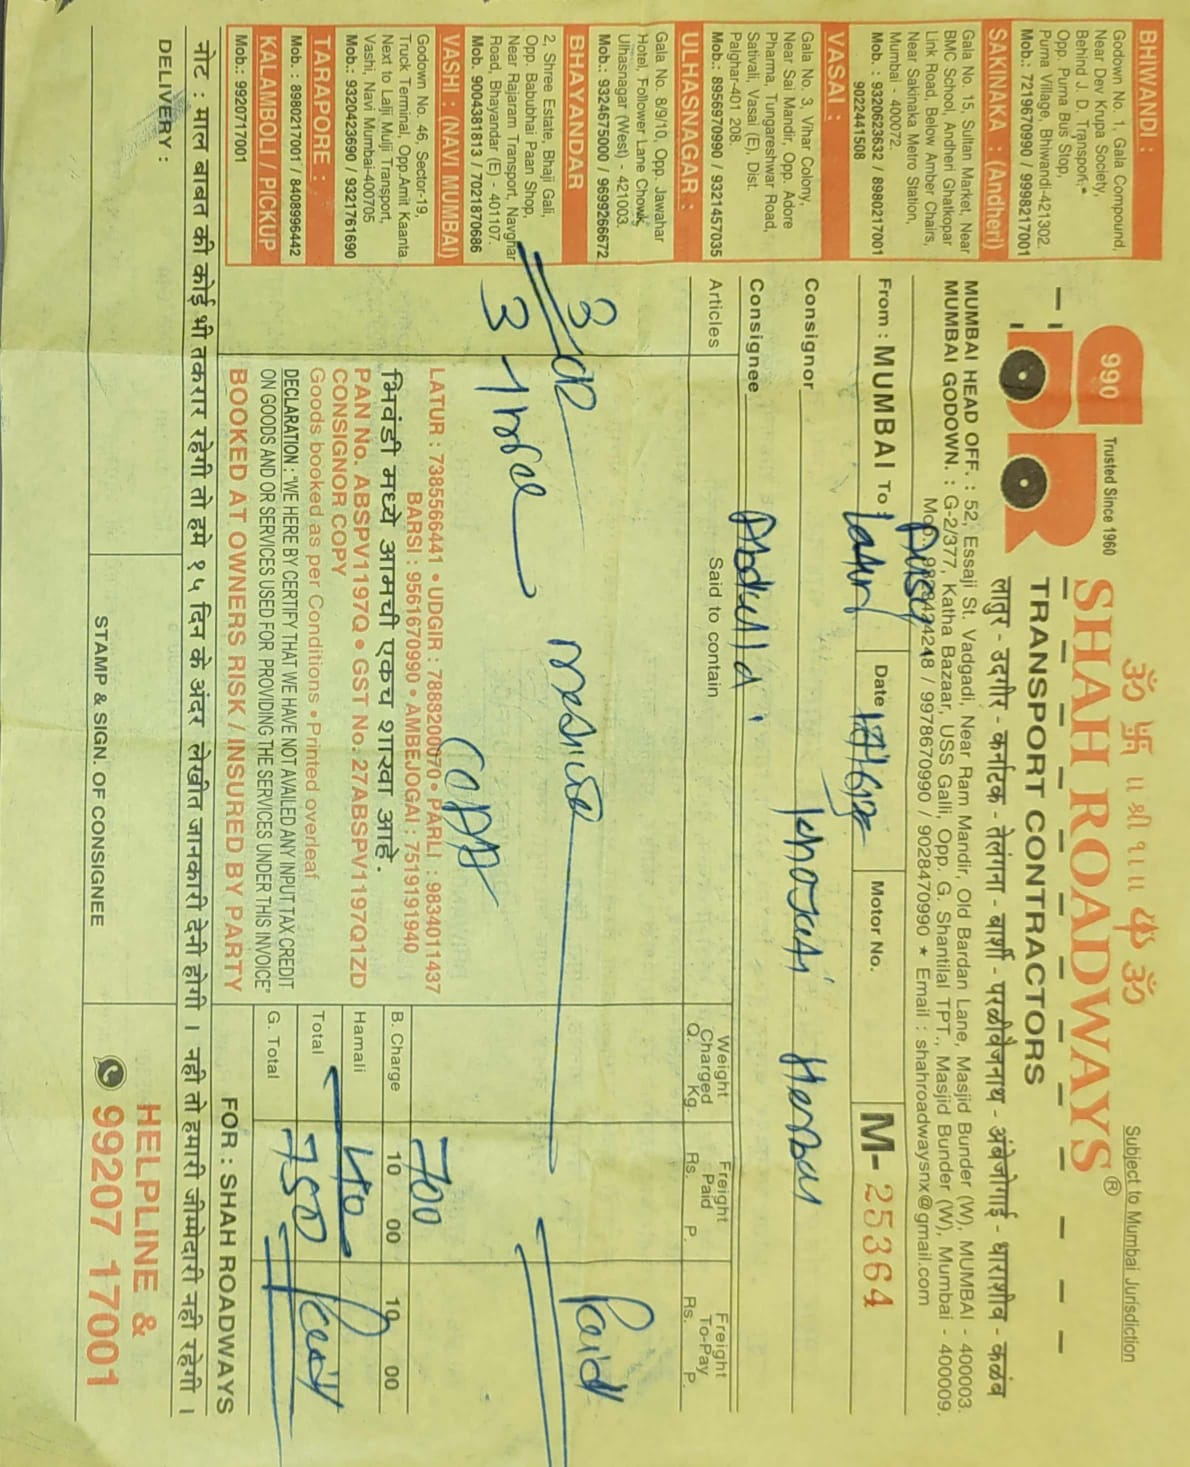 ॐ 卐 ॥ श्री १ ॥ ॐ
Subject to Mumbai Jurisdiction
990
Trusted Since 1960
SHAH ROADWAYS®
TRANSPORT CONTRACTORS
लातुर - उदगीर - कर्नाटक - तेलंगना - बार्शी - परळीवैजनाथ - अंबेजोगाई - धाराशीव - कळंब
MUMBAI HEAD OFF. : 52, Essaji St. Vadgadi, Near Ram Mandir, Old Bardan Lane, Masjid Bunder (W), MUMBAI - 400003.
MUMBAI GODOWN. : G-2/377, Katha Bazaar, USS Galli, Opp. G. Shantilal TPT., Masjid Bunder (W), Mumbai - 400009.
9978670990 / 9028470990 ★ Email : shahroadwaysnx@gmail.com
From : MUMBAI To : Latur
Date
Motor No.
M- 25364
Consignor
Consignee Abdulla
Articles
Said to contain
Weight Charged Q. Kg.
Freight Paid Rs. P.
Freight To-Pay Rs. P.
3
Paid
3
700
LATUR : 738566441 • UDGIR : 7888200070 • PARLI : 9834011437
BARSI : 9561670990 • AMBEJOGAI : 7519191940
भिवंडी मध्ये आमची एकच शाखा आहे.
PAN No. ABSPV1197Q • GST No. 27ABSPV1197Q1ZD
CONSIGNOR COPY
Goods booked as per Conditions • Printed overleaf
DECLARATION : "WE HERE BY CERTIFY THAT WE HAVE NOT AVAILED ANY INPUT TAX CREDIT
ON GOODS AND OR SERVICES USED FOR PROVIDING THE SERVICES UNDER THIS INVOICE"
BOOKED AT OWNERS RISK / INSURED BY PARTY
B. Charge 10 00 10 00
Hamali 40
Total 750
G. Total
FOR : SHAH ROADWAYS
BHIWANDI :
Godown No. 1, Gala Compound,
Near Dev Krupa Society,
Behind J. D. Transport,
Opp. Purna Bus Stop,
Purna Village, Bhiwandi-421302.
Mob.: 7219670990 / 9998217001
SAKINAKA : (Andheri)
Gala No. 15, Sultan Market, Near
BMC School, Andheri Ghatkopar
Link Road, Below Amber Chairs,
Near Sakinaka Metro Station,
Mumbai - 400072.
Mob. : 9320623632 / 8980217001
9022441508
VASAI :
Gala No. 3, Vihar Colony,
Near Sai Mandir, Opp. Adore
Pharma, Tungareshwar Road,
Sativali, Vasai (E), Dist.
Palghar-401 208.
Mob.: 8956970990 / 9321457035
ULHASNAGAR :
Gala No. 8/9/10, Opp. Jawahar
Hotel, Follower Lane Chowk,
Ulhasnagar (West) - 421003.
Mob.: 9324675000 / 9699266672
BHAYANDAR
2, Shree Estate, Bhaji Gali,
Opp. Babubhai Paan Shop,
Near Rajaram Transport, Navghar
Road, Bhayandar (E) - 401107.
Mob. 9004381813 / 7021870686
VASHI : (NAVI MUMBAI)
Godown No. 46, Sector-19,
Truck Terminal, Opp.Amit Kaanta
Next to Lalji Mulji Transport,
Vashi, Navi Mumbai-400705
Mob.: 9320423690 / 9321761690
TARAPORE :
Mob. : 8980217001 / 8408996442
KALAMBOLI / PICKUP
Mob.: 9920717001
नोट : माल बाबत की कोई भी तकरार रहेगी तो हमे १५ दिन के अंदर लेखीत जानकारी देनी होगी । नही तो हमारी जीम्मेदारी नही रहेगी ।
DELIVERY :
STAMP & SIGN. OF CONSIGNEE
HELPLINE &
99207 17001